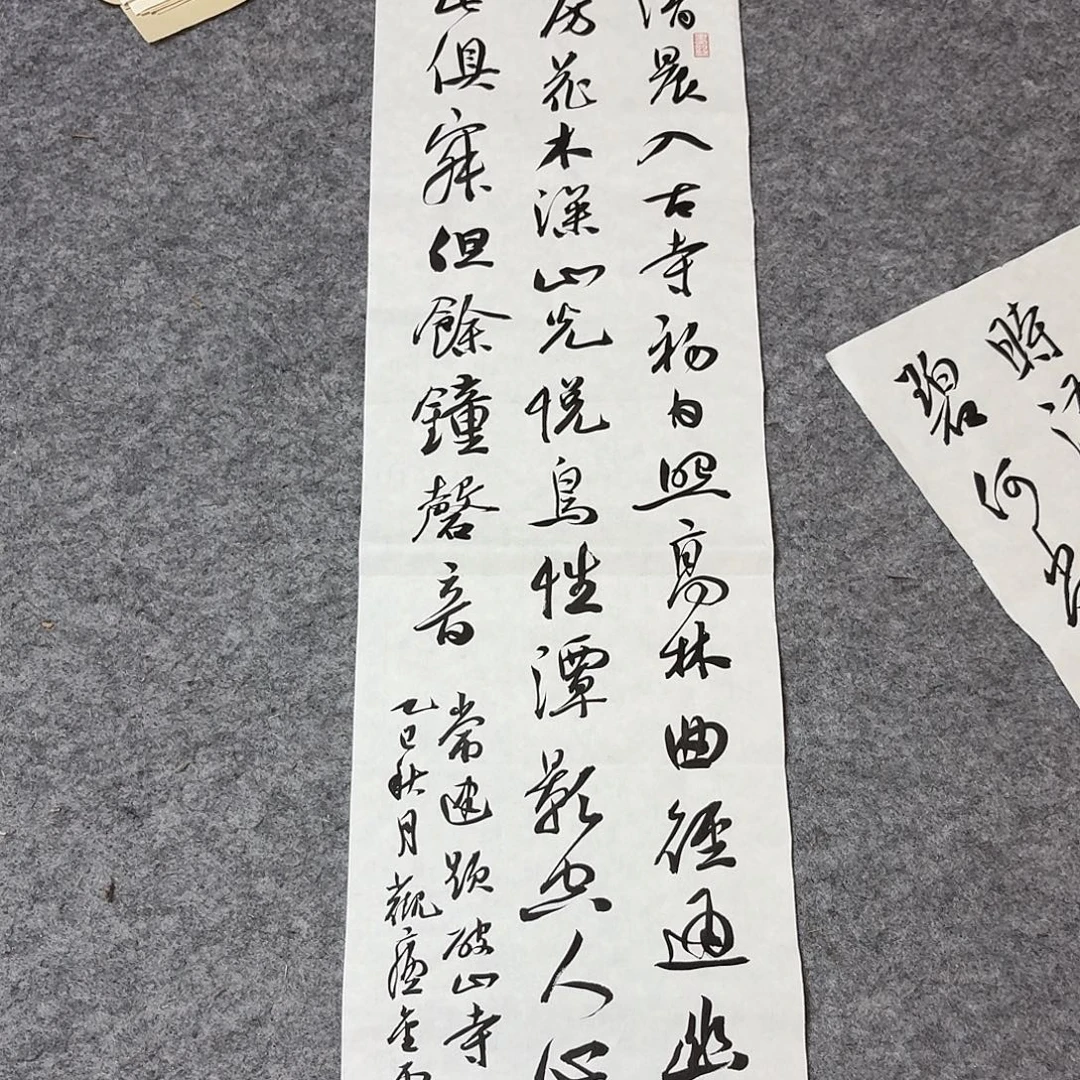 清晨入古寺初日照高林曲径通幽
房花木深山光悦鳥性潭影空人心
此俱寂但餘鐘磬音
常建題破山寺
乙巳秋月觀
時
碧何